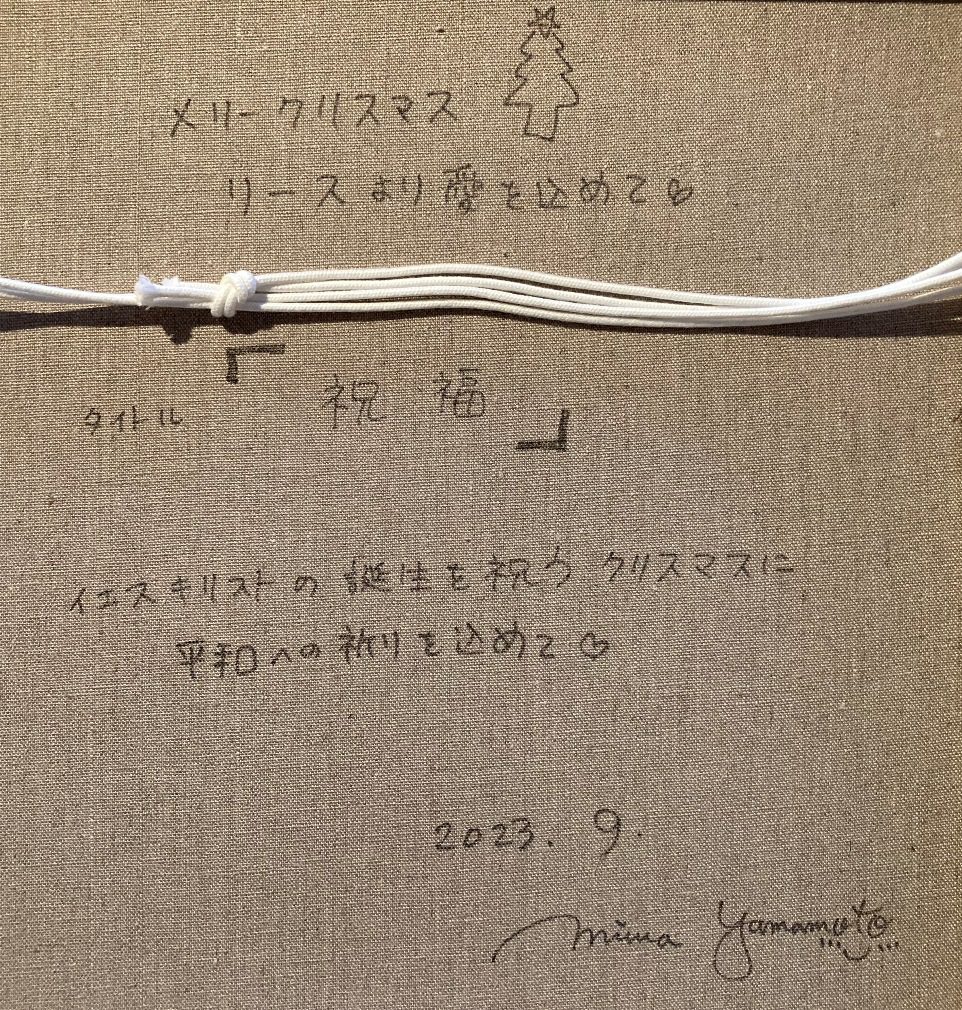 メリークリスマス
リースより愛を込めて♡
タイトル 『祝福』
イエスキリストの誕生を祝うクリスマスに
平和への祈りを込めて♡
2023.9.
miwa Yamamoto